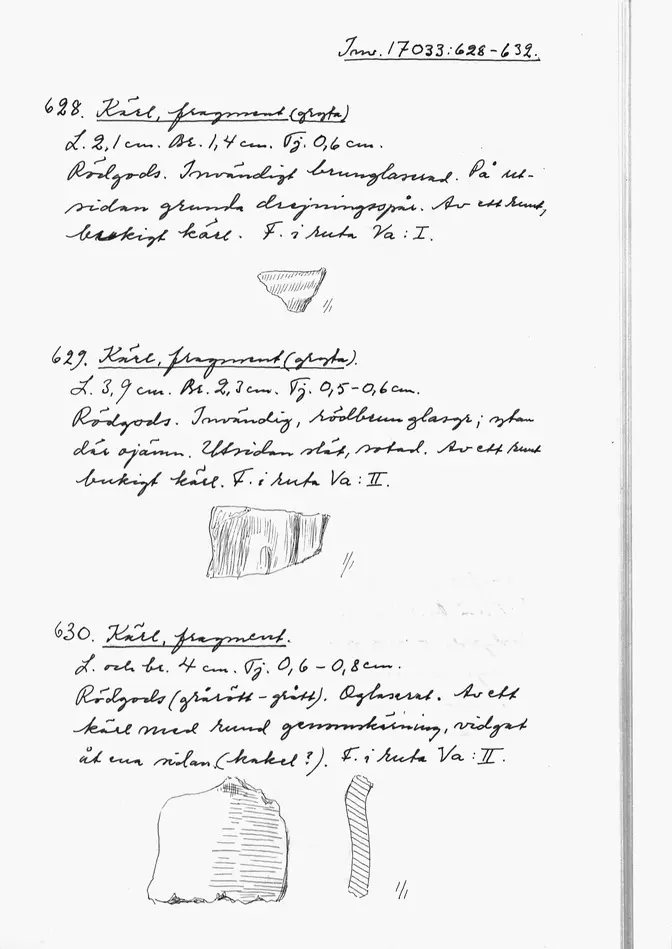 Inv. 17033:628-632.
628. Kärl, fragment (gryta)
L. 2,1 cm. Br. 1,4 cm. Tj. 0,6 cm.
Rödgods. Invändigt brunglaserad. På ut-
sidan grunda drejningsspår. Av ett runt,
bukigt kärl. F. i ruta Va : I.
1/1
629. Kärl, fragment (gryta).
L. 3,9 cm. Br. 2,3 cm. Tj. 0,5-0,6 cm.
Rödgods. Invändig, rödbrun glasyr; ytan
där ojämn. Utsidan slät, sotad. Av ett runt
bukigt kärl. F. i ruta Va : II.
1/1
630. Kärl, fragment.
L. och br. 4 cm. Tj. 0,6 - 0,8 cm.
Rödgods (grårött - grått). Oglaserat. Av ett
kärl med rund genomskärning, vidgat
åt ena sidan (kakel?). F. i ruta Va : II.
1/1